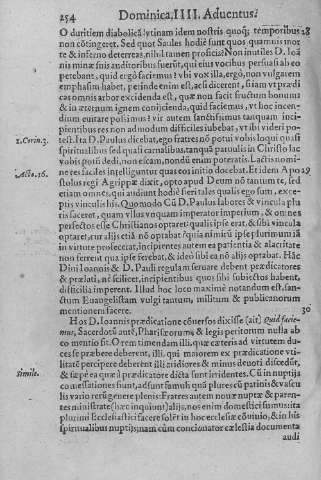 254 Dominica, IIII. Aduentus.
O duritiem diabolicã! vtinam idem nostris quoq; temporibus 28
non cõtingeret. Sed quot Saules hodie sunt quos quamuis mor
te & inferno deterreas, nihil tamen proficias? Non inutiles D. Ioã
nis minæ suis auditoribus fuerũt, qui eius vocibus persuasi ab eo
petebant, quid ergò faciemus? vbi vox illa, ergò, non vulgarem
emphasim habet, perinde enim est, ac si dicerent, si iam vt prædi
cas omnis arbor excidenda est, quæ non facit fructum bonum
& in æternum ignem conijcienda, quid faciemus, vt hoc incen-
dium euitare possimus? vir autem sanctissimus tanquam inci-
pientibus res non admodum difficiles iubebat, vt ibi videri po-
1. Corin. 3. test. Ita D. Paulus dicebat, ego fratres nõ potui vobis loqui quasi
spiritualibus sed quasi carnalibus. tanquã paruulis in Christo lac
vobis potũ dedi, non escam, nondũ enim poteratis. Lactis nomi-
ne res faciles intelliguntur quas eos initio docebat. Et idem Apo 29
Acto. 26. stolus regi Agrippæ dicit, opto apud Deum nõ tantum te, sed
etiam omnes, qui audiunt hodie fieri tales qualis ego sum, exce-
ptis vinculis his. Quomodo Cũ D. Paulus labores & vincula plu
ris faceret, quam vllus vnquam imperator imperium, & omnes
perfectos esse Christianos optaret: qualis ipse erat, & sibi vincula
optaret, cur alijs etiã nõ optabat? quia nimirũ ipse summus iã
in virtute profecerat, incipientes autem ea patientia & alacritate
non ferrent qua ipse ferebat, & ideò sibi ea nõ alijs optabat. Hãc
Diui Ioannis & D. Pauli regulam seruare debent prædicatores
& prælati, nē scilicet, incipientibus quos sibi subiectos habent,
difficilia imperent. Illud hoc loco maximè notandum est, san-
ctum Euangelistam vulgi tantum, militum & publicanorum
mentionem facere. 30
Hos D. Ioannis prædicatione cõuersos dixisse (ait) Quid facie-
mus, Sacerdotũ autē, Pharisæorum, & legis peritorum nulla ab
eo mentio sit. O rem timendam illi, quæ cæteris ad virtutem du-
ces se præbere deberent, illi, qui maiorem ex prædicatione vti-
litatē percipere deberent illi aridiores & minus deuoti discedũt,
Simile. & sæpè ea quæ à prædicatore dicta sunt irrident. Cũ in nuptijs
comessationes sunt, adsunt famuli quà plures cũ patinis & vascu
lis vario rerũ genere plenis: Fratres autem nouæ nuptæ & paren-
tes ministrãt (hæc inquiunt) alijs, nos enim domestici sumus: ita
plurimi Ecclesiastici facere solēt in hoc ecclesiæ cõuiuio, & in his
spiritualibus nuptijs, nam cùm concionator cælestia documenta
audi